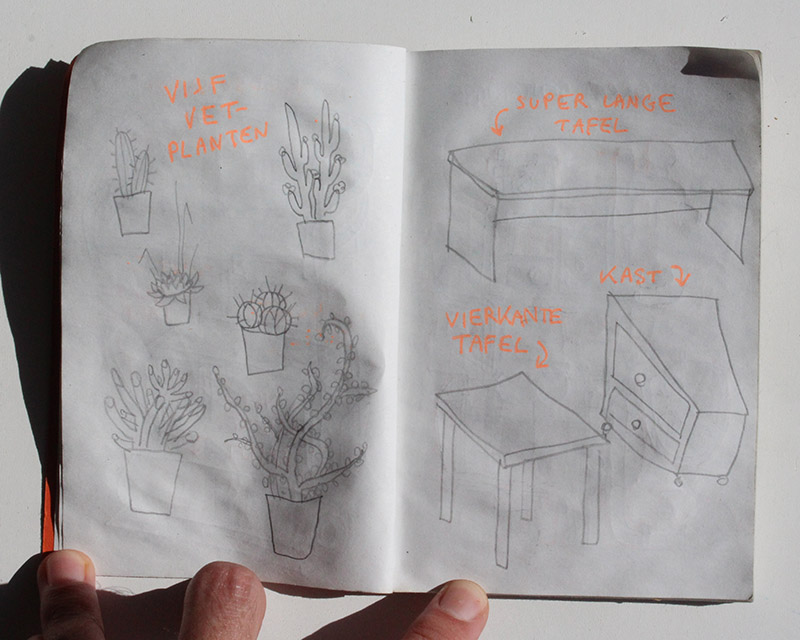 VIJF
VET-
PLANTEN
SUPER LANGE
TAFEL
KAST
VIERKANTE
TAFEL